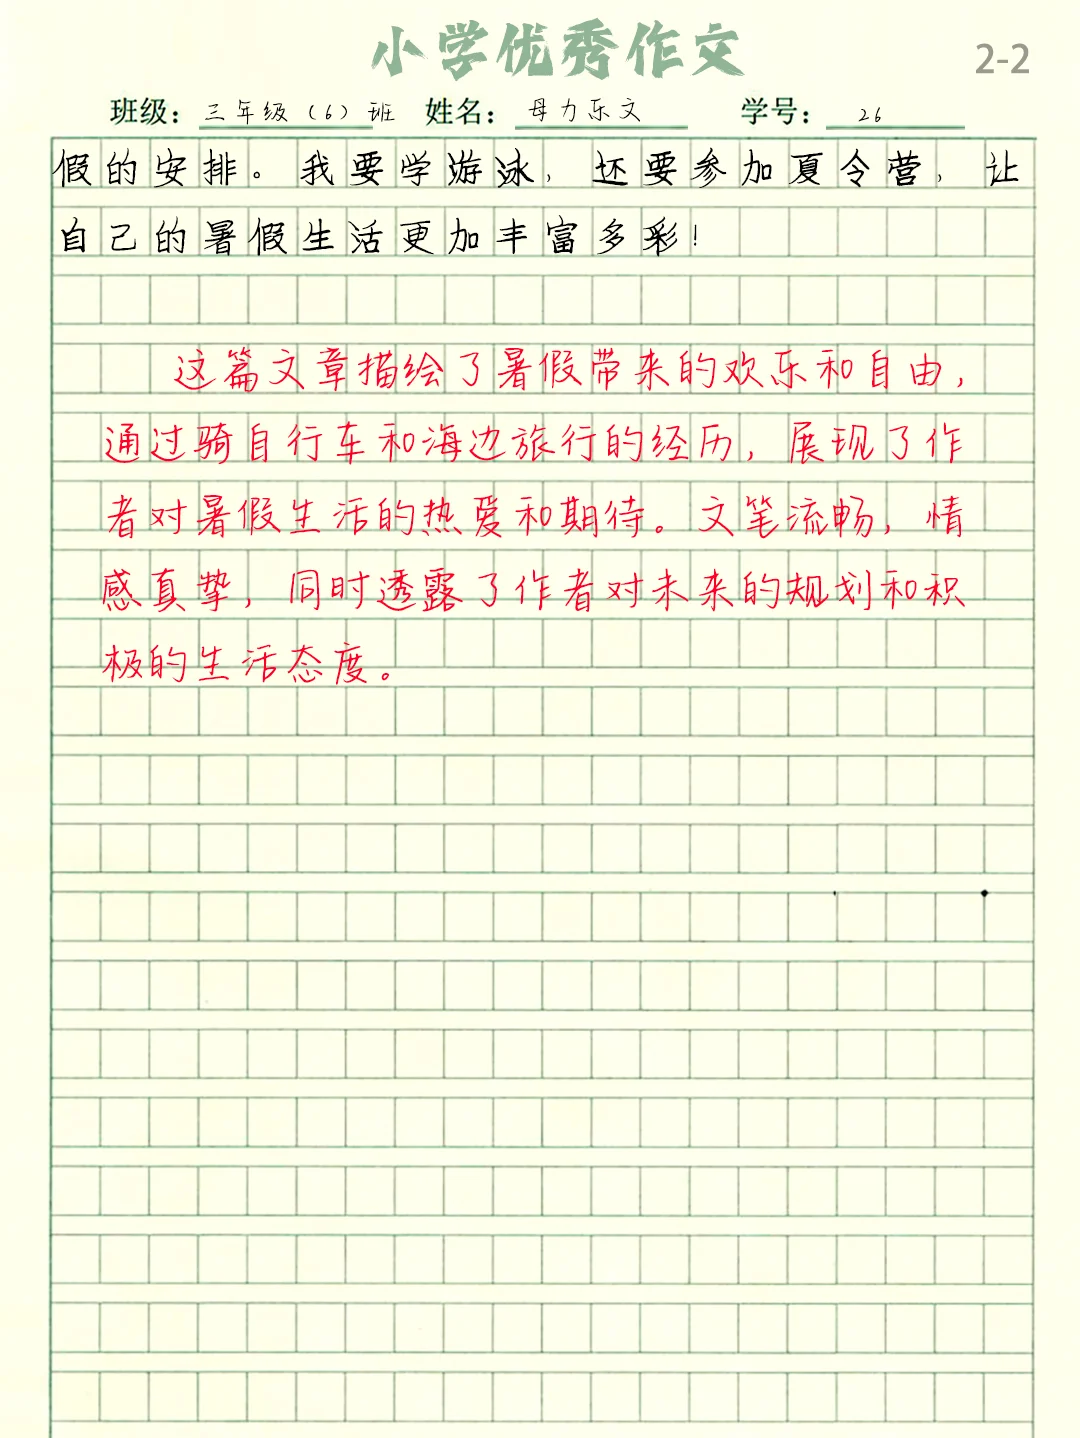 小学优秀作文
2-2
班级：三年级（6）班 姓名：母力乐文 学号：26
假的安排。我要学游泳，还要参加夏令营，让
自己的暑假生活更加丰富多彩！
这篇文章描绘了暑假带来的欢乐和自由，
通过骑自行车和海边旅行的经历，展现了作
者对暑假生活的热爱和期待。文笔流畅，情
感真挚，同时透露了作者对未来的规划和积
极的生活态度。